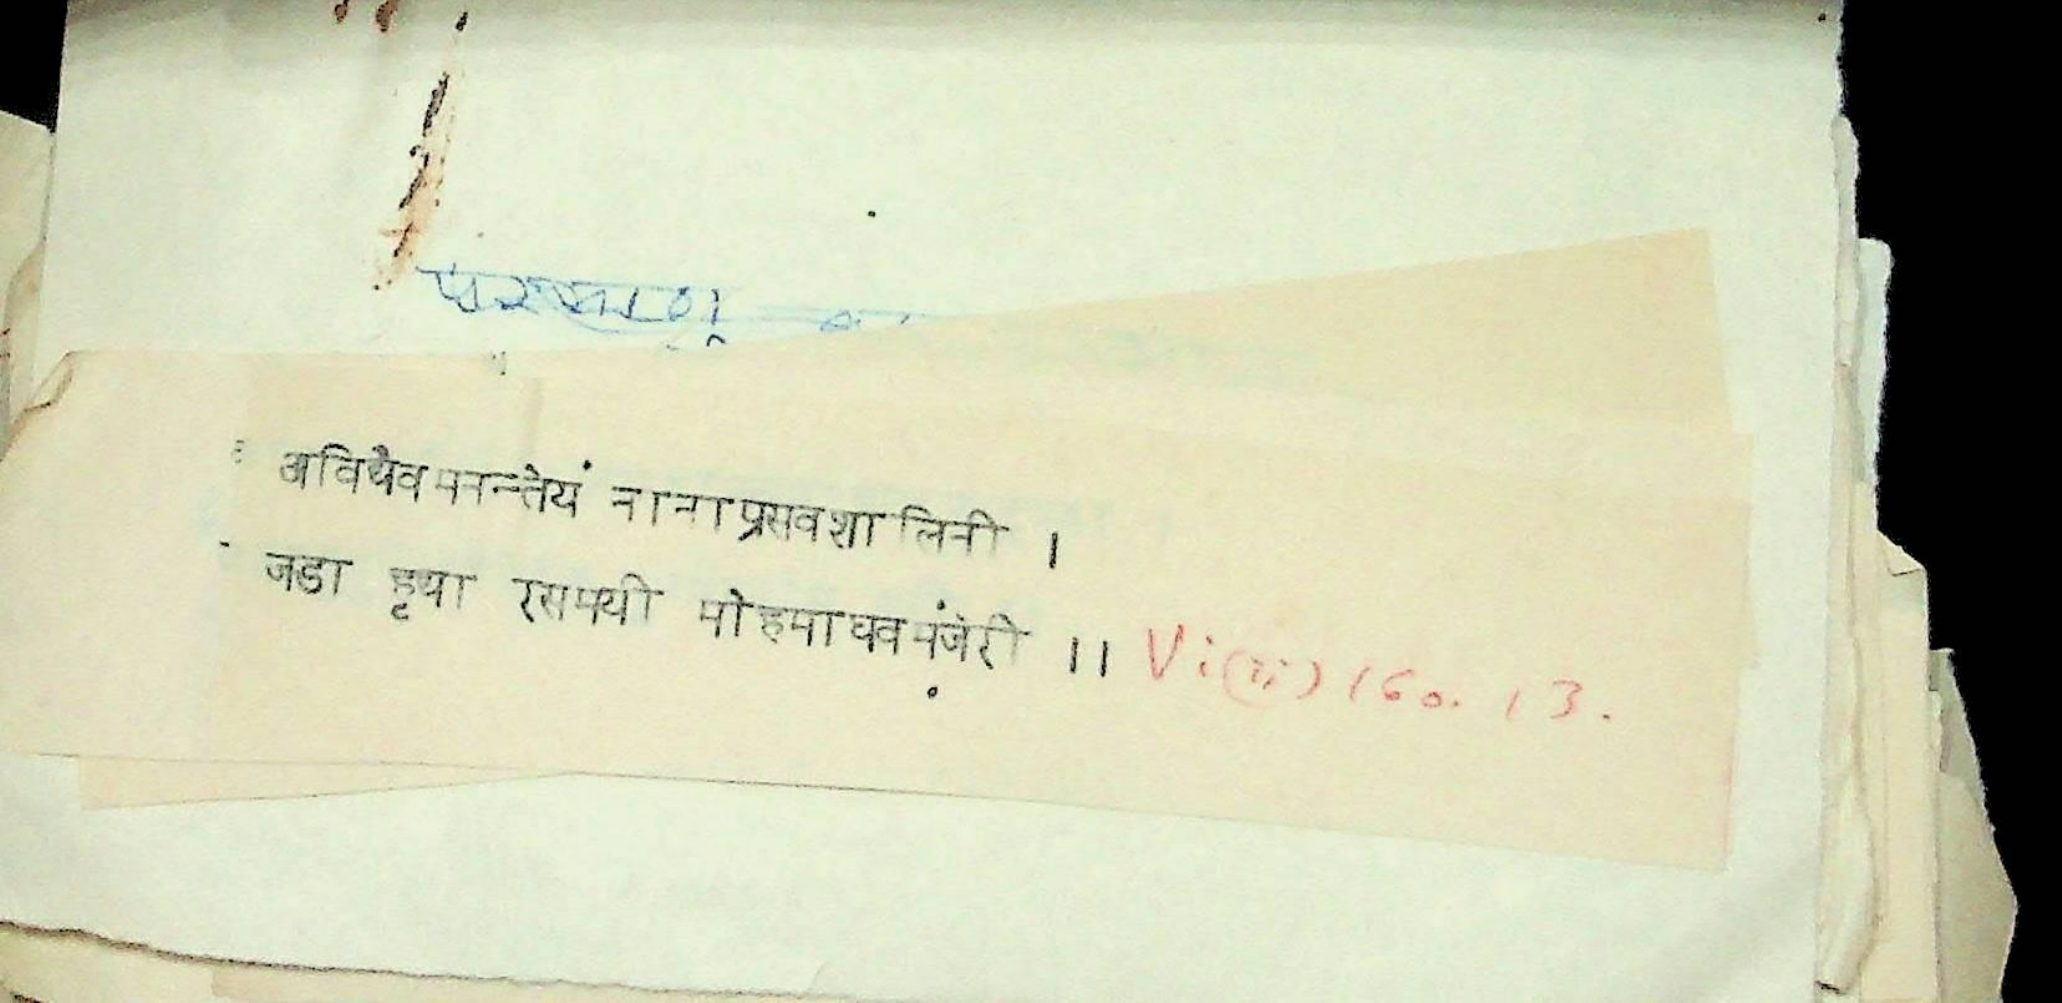 अविद्यैवमनन्तेयं नानाप्रसवशालिनी ।
जडा हृद्या रसमयी मोहमाधवमंजरी ।। Vi(ii) 160. 13.